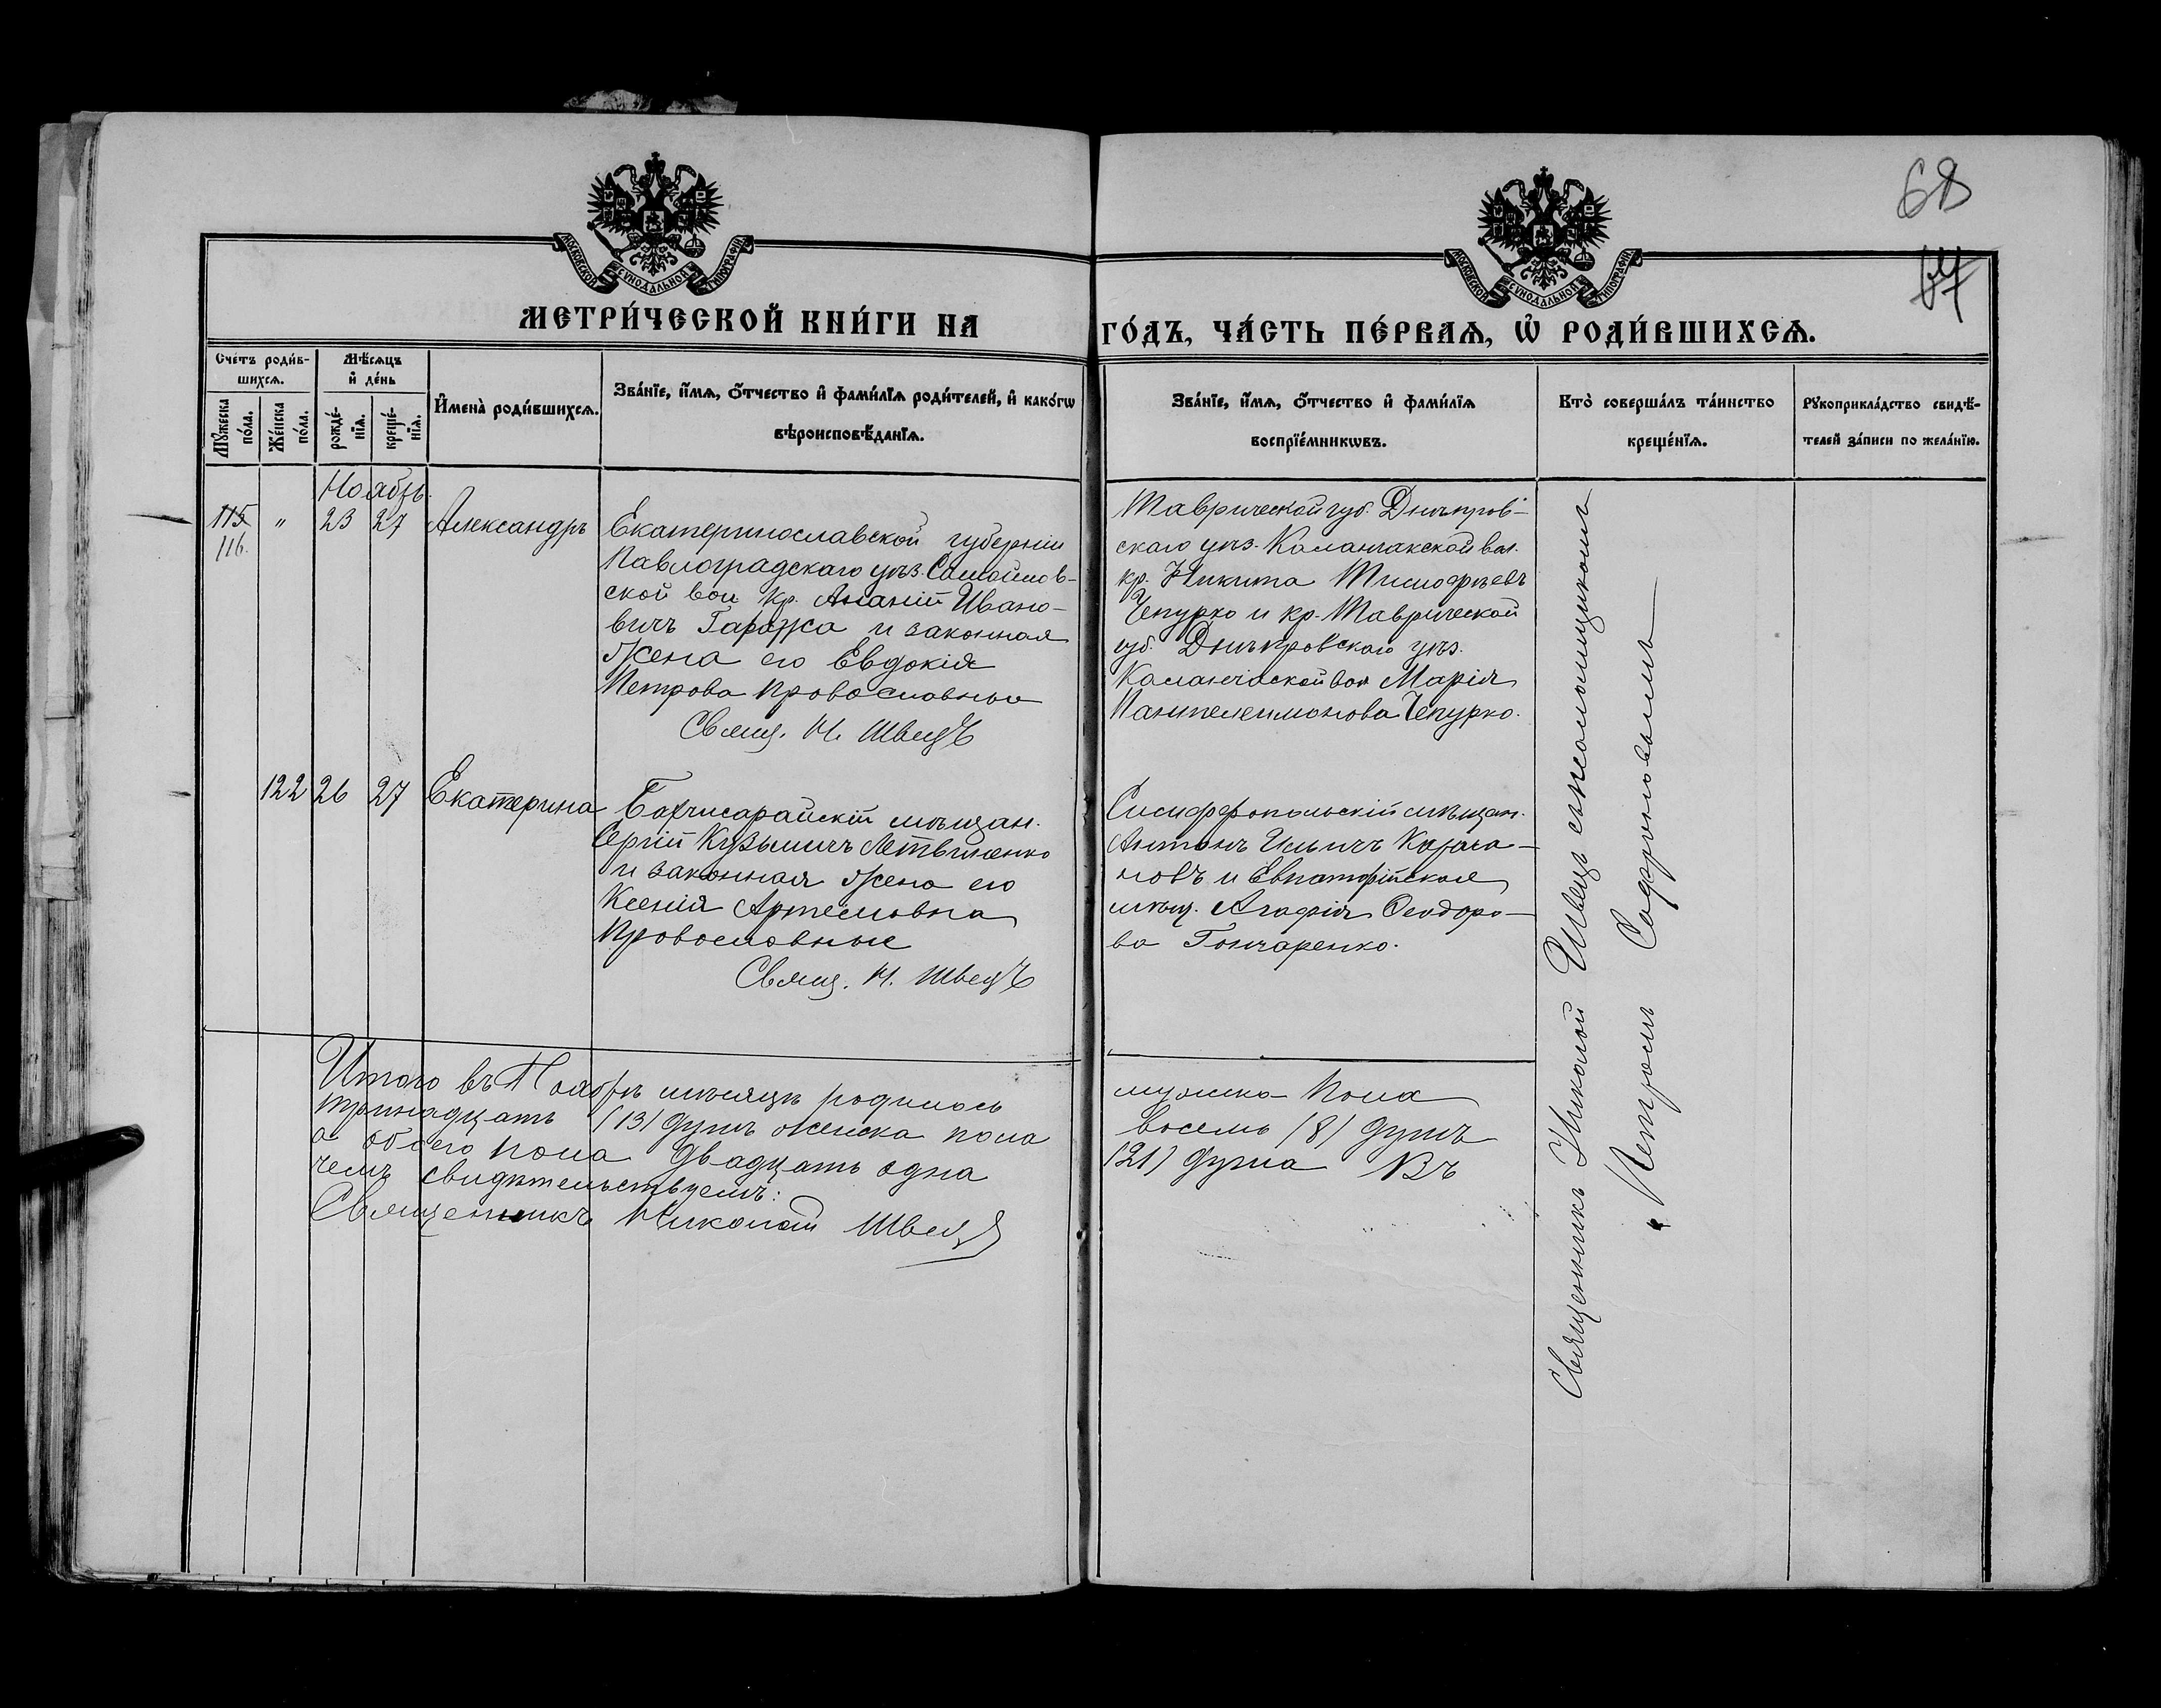 68
67
МОСКОВСКОЙ СѴНОДАЛЬНОЙ ТИПОГРАФІИ
МОСКОВСКОЙ СѴНОДАЛЬНОЙ ТИПОГРАФІИ
МЕТРИ́ЧЕСКОЙ КНИ́ГИ НА
ГО́ДЪ, ЧА́СТЬ ПЕ́РВАѦ, Ѽ РОДИ́ВШИХСѦ.
Сче́тъ роди́в-
шихсѧ.
Мꙋ́жеска
по́ла.
Же́нска
по́ла.
Мѣ́сѧцъ
и҆ де́нь
рожде́-
нїѧ.
креще́-
нїѧ.
И҆мена̀ роди́вшихсѧ.
Зва́нїе, и҆́мѧ, ѻ҆́тчество и҆ фами́лїѧ роди́телей, и҆ како́гѡ
вѣроисповѣ́данїѧ.
Зва́нїе, и҆́мѧ, ѻ҆́тчество и҆ фами́лїѧ
воспрїе́мникѡвъ.
Кто̀ соверша́лъ та́инство
креще́нїѧ.
Рꙋкоприкла́дство свидѣ́-
телей за́писи по жела́нїю.
Ноябрь.
115 " 23 27 Александръ
116.
Екатеринославской губерніи
Павлоградскаго уѣз. Самойлов-
ской вол. кр. Ананій Ивано-
вичъ Гаражa и законная
жена его Евдокія
Петрова православные
Свящ. Н. Швецъ
Таврической губ. Днѣпров-
скаго уѣз. Каланчакской вол.
кр. Никита Тимофѣевъ
Чепурко и кр. Таврической
губ. Днѣпровскаго уѣз.
Каланчаской вол Марія
Пантелеимонова Чепурко.
122 26 27 Екатерина
Бахчисарайскій мѣщан.
Сергій Кузьмичъ Литвиненко
и законная жена его
Ксенія Артемовна
Православные
Свящ. Н. Швецъ
Симферопольскій мѣщан.
Антонъ Ильичъ
новъ и Евпаторійская
мѣщ. Агафія Ѳеодоро-
ва Гончаренко.
Священникъ Николай Швецъ съ псаломщикомъ
Петромъ Софроновымъ
Итого въ Ноябрѣ мѣсяцѣ родилось
тринадцать (13) душъ женска пола
а обоего пола двадцать одна
чемъ свидѣтельствуемъ:
Священникъ Николай Швецъ
мужска пола
восемь (8) душъ
(21) душа Въ